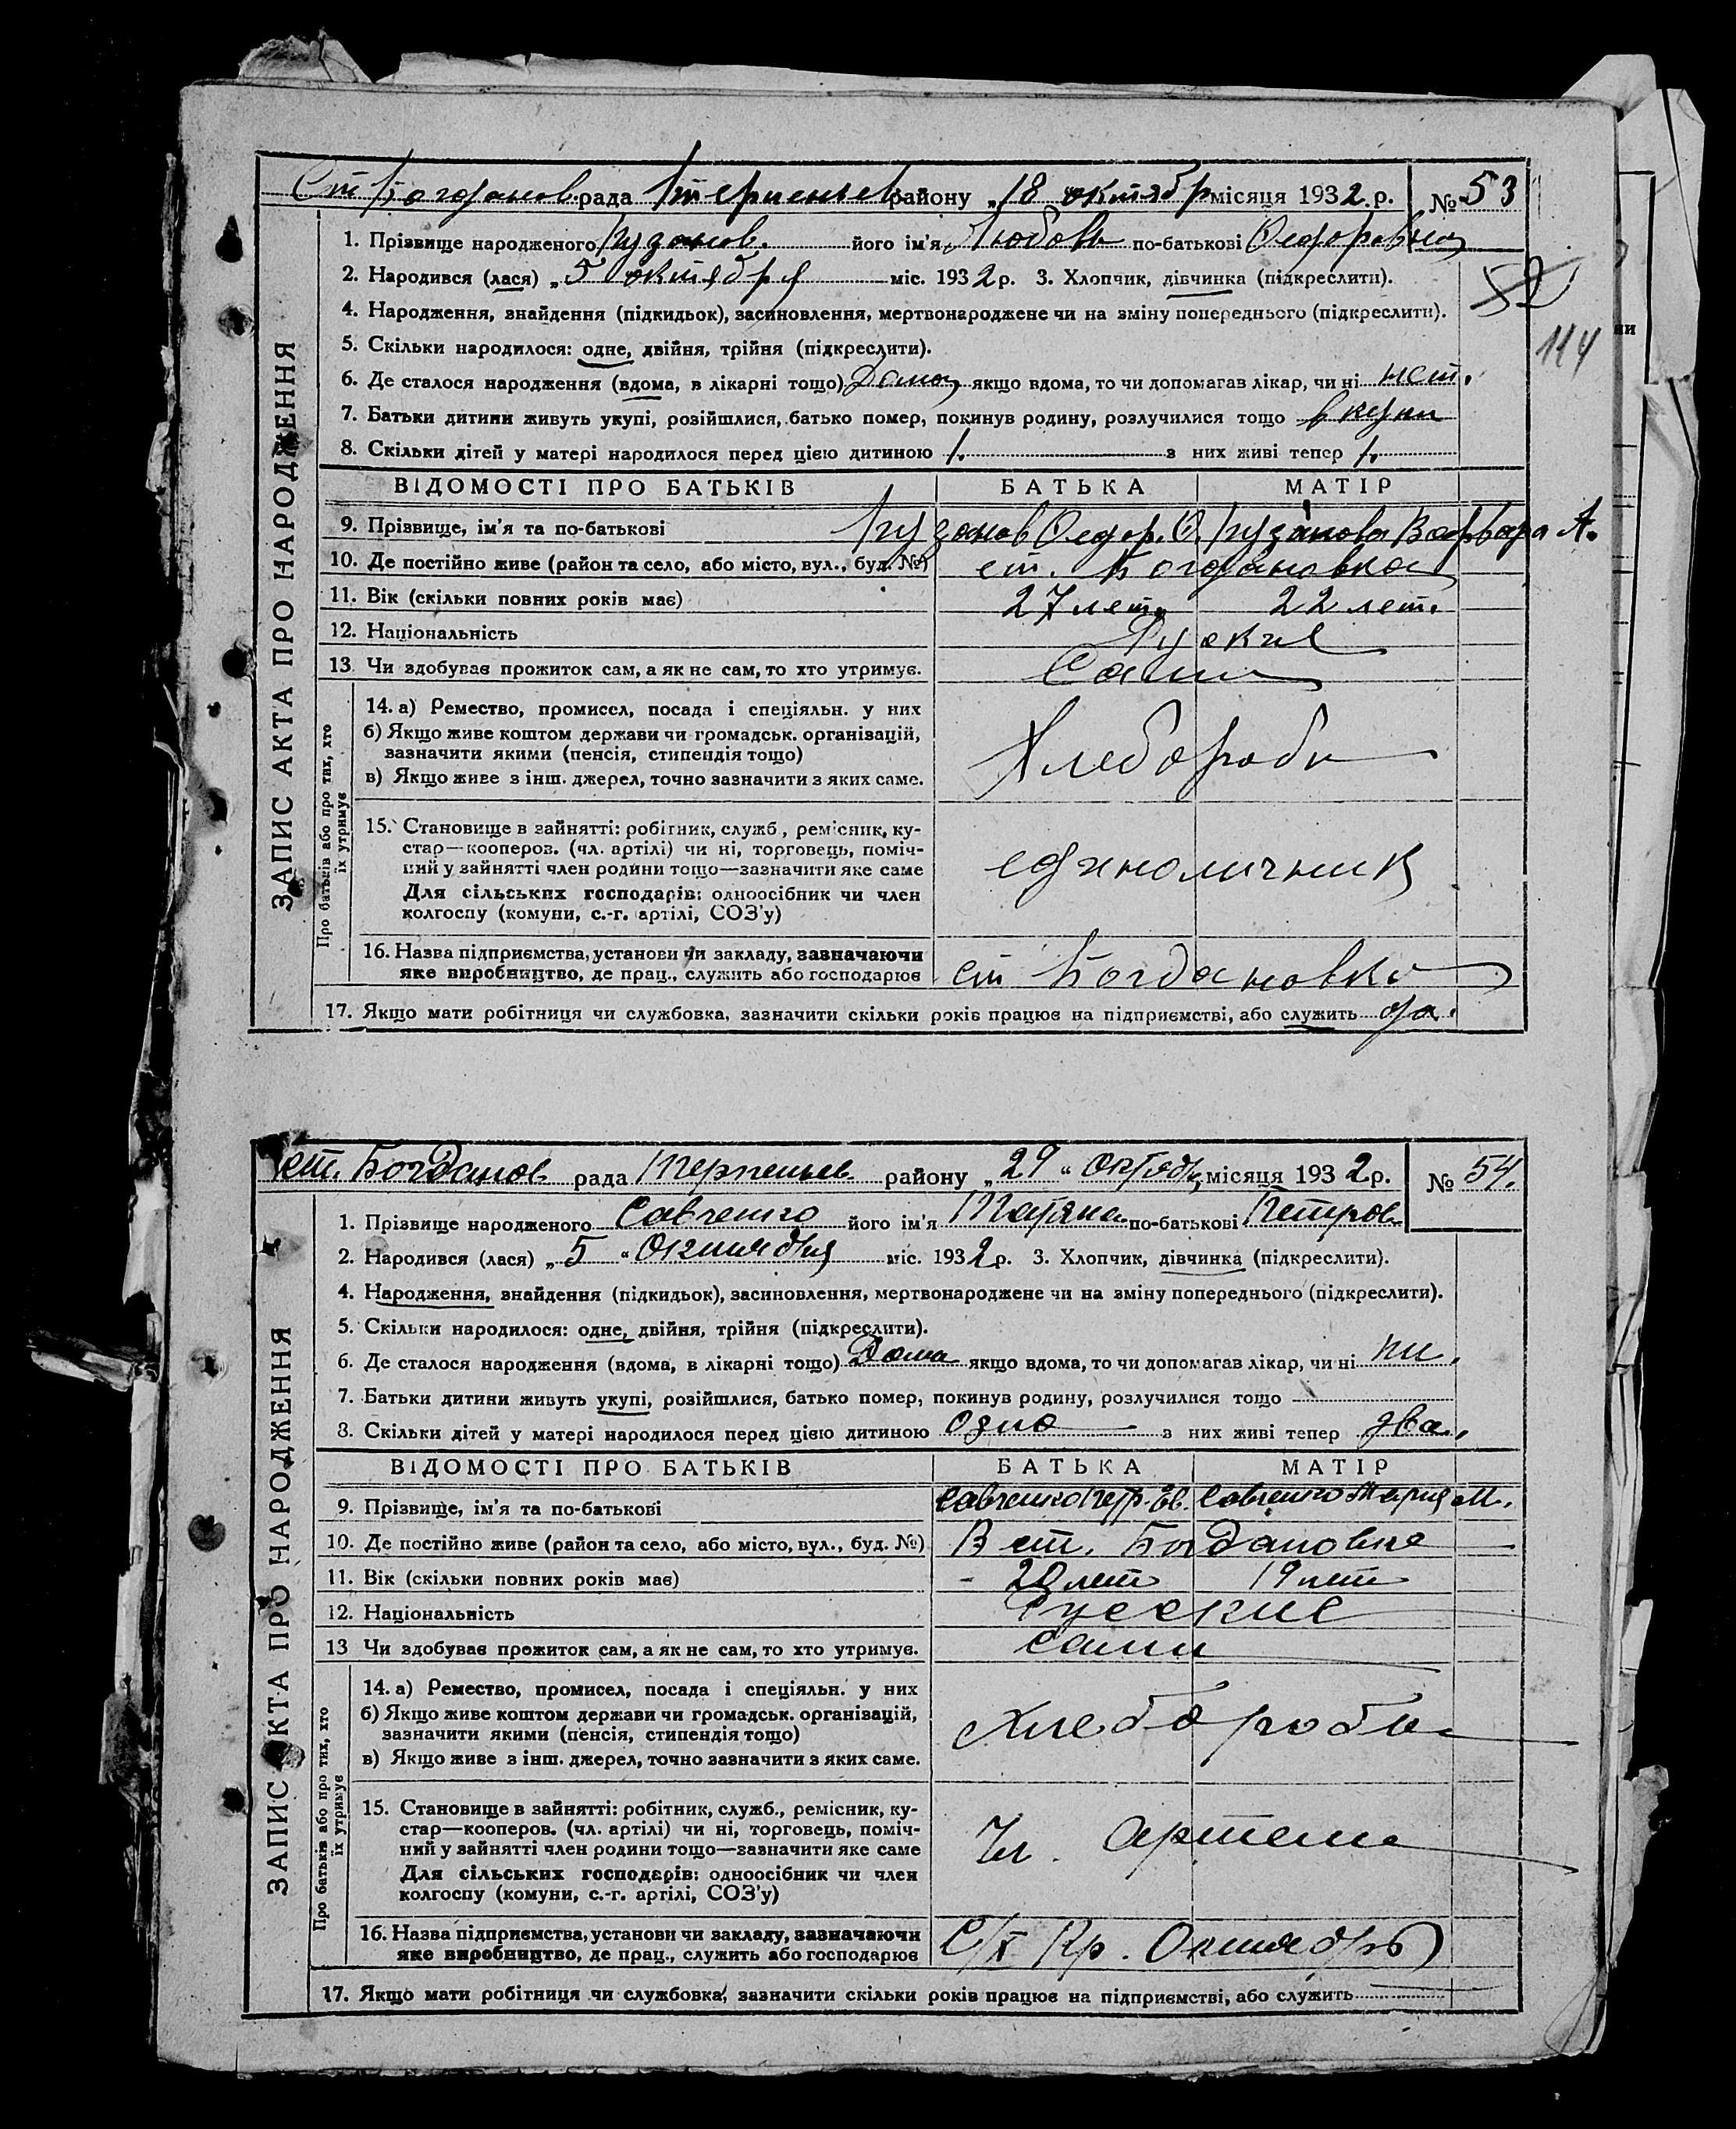 Ст. Богданов. рада Терпеньев району „18 октябр місяця 1932 р. № 53
1. Прізвище народженого Пузанов. його ім'я Любовь по-батькові Федоровна
2. Народився (лася) „5 октября міс. 1932 р. 3. Хлопчик, дівчинка (підкреслити).
52
4. Народження, знайдення (підкидьок), засиновлення, мертвонароджене чи на зміну попереднього (підкреслити).
114
5. Скільки народилося: одне, двійня, трійня (підкреслити).
6. Де сталося народження (вдома, в лікарні тощо) Дома якщо вдома, то чи допомагав лікар, чи ні нет.
7. Батьки дитини живуть укупі, розійшлися, батько помер, покинув родину, розлучилися тощо вкупи
8. Скільки дітей у матері народилося перед цією дитиною 1. з них живі тепер 1.
ЗАПИС АКТА ПРО НАРОДЖЕННЯ
ВІДОМОСТІ ПРО БАТЬКІВ БАТЬКА МАТІР
9. Прізвище, ім'я та по-батькові Пузанов Федор. Ф. Пузанова Варвара А.
10. Де постійно живе (район та село, або місто, вул., буд. №) ст. Богдановка
11. Вік (скільки повних років має) 27 лет. 22 лет.
12. Національність Руские
13 Чи здобуває прожиток сам, а як не сам, то хто утримує. Сами
Про батьків або про тих, хто їх утримує
14. а) Ремество, промисел, посада і спеціяльн. у них
б) Якщо живе коштом держави чи громадськ. організацій,
зазначити якими (пенсія, стипендія тощо) Хлеборобы
в) Якщо живе з інш. джерел, точно зазначити з яких саме.
15. Становище в зайнятті: робітник, служб., ремісник, ку-
стар—кооперов. (чл. артілі) чи ні, торговець, поміч-
ний у зайнятті член родини тощо—зазначити яке саме единоличник
Для сільських господарів: одноосібник чи член
колгоспу (комуни, с.-г. артілі, СОЗ'у)
16. Назва підприємства, установи чи закладу, зазначаючи
яке виробництво, де прац., служить або господарює ст Богдановка
17. Якщо мати робітниця чи службовка, зазначити скільки років працює на підприємстві, або служить да.
ст. Богданов рада Терпеньев району „29 “ Октябр місяця 1932 р. № 54.
1. Прізвище народженого Савченко його ім'я Татяна по-батькові Петров
2. Народився (лася) „5 “ Октября міс. 1932 р. 3. Хлопчик, дівчинка (підкреслити).
4. Народження, знайдення (підкидьок), засиновлення, мертвонароджене чи на зміну попереднього (підкреслити).
5. Скільки народилося: одне, двійня, трійня (підкреслити).
6. Де сталося народження (вдома, в лікарні тощо) Дома якщо вдома, то чи допомагав лікар, чи ні ни.
7. Батьки дитини живуть укупі, розійшлися, батько помер, покинув родину, розлучилися тощо
8. Скільки дітей у матері народилося перед цією дитиною одно з них живі тепер два.
ЗАПИС АКТА ПРО НАРОДЖЕННЯ
ВІДОМОСТІ ПРО БАТЬКІВ БАТЬКА МАТІР
9. Прізвище, ім'я та по-батькові Савченко Петр. Ев. Савченко Мария М.
10. Де постійно живе (район та село, або місто, вул., буд. №) В ст. Богдановке
11. Вік (скільки повних років має) 20 лет 19 лет
12. Національність Руские
13 Чи здобуває прожиток сам, а як не сам, то хто утримує. сами
Про батьків або про тих, хто їх утримує
14. а) Ремество, промисел, посада і спеціяльн. у них
б) Якщо живе коштом держави чи громадськ. організацій,
зазначити якими (пенсія, стипендія тощо) хлеборобы
в) Якщо живе з інш. джерел, точно зазначити з яких саме.
15. Становище в зайнятті: робітник, служб., ремісник, ку-
стар—кооперов. (чл. артілі) чи ні, торговець, поміч-
ний у зайнятті член родини тощо—зазначити яке саме Чл. артели
Для сільських господарів: одноосібник чи член
колгоспу (комуни, с.-г. артілі, СОЗ'у)
16. Назва підприємства, установи чи закладу, зазначаючи
яке виробництво, де прац., служить або господарює С/х Кр. Октябрь
17. Якщо мати робітниця чи службовка, зазначити скільки років працює на підприємстві, або служить